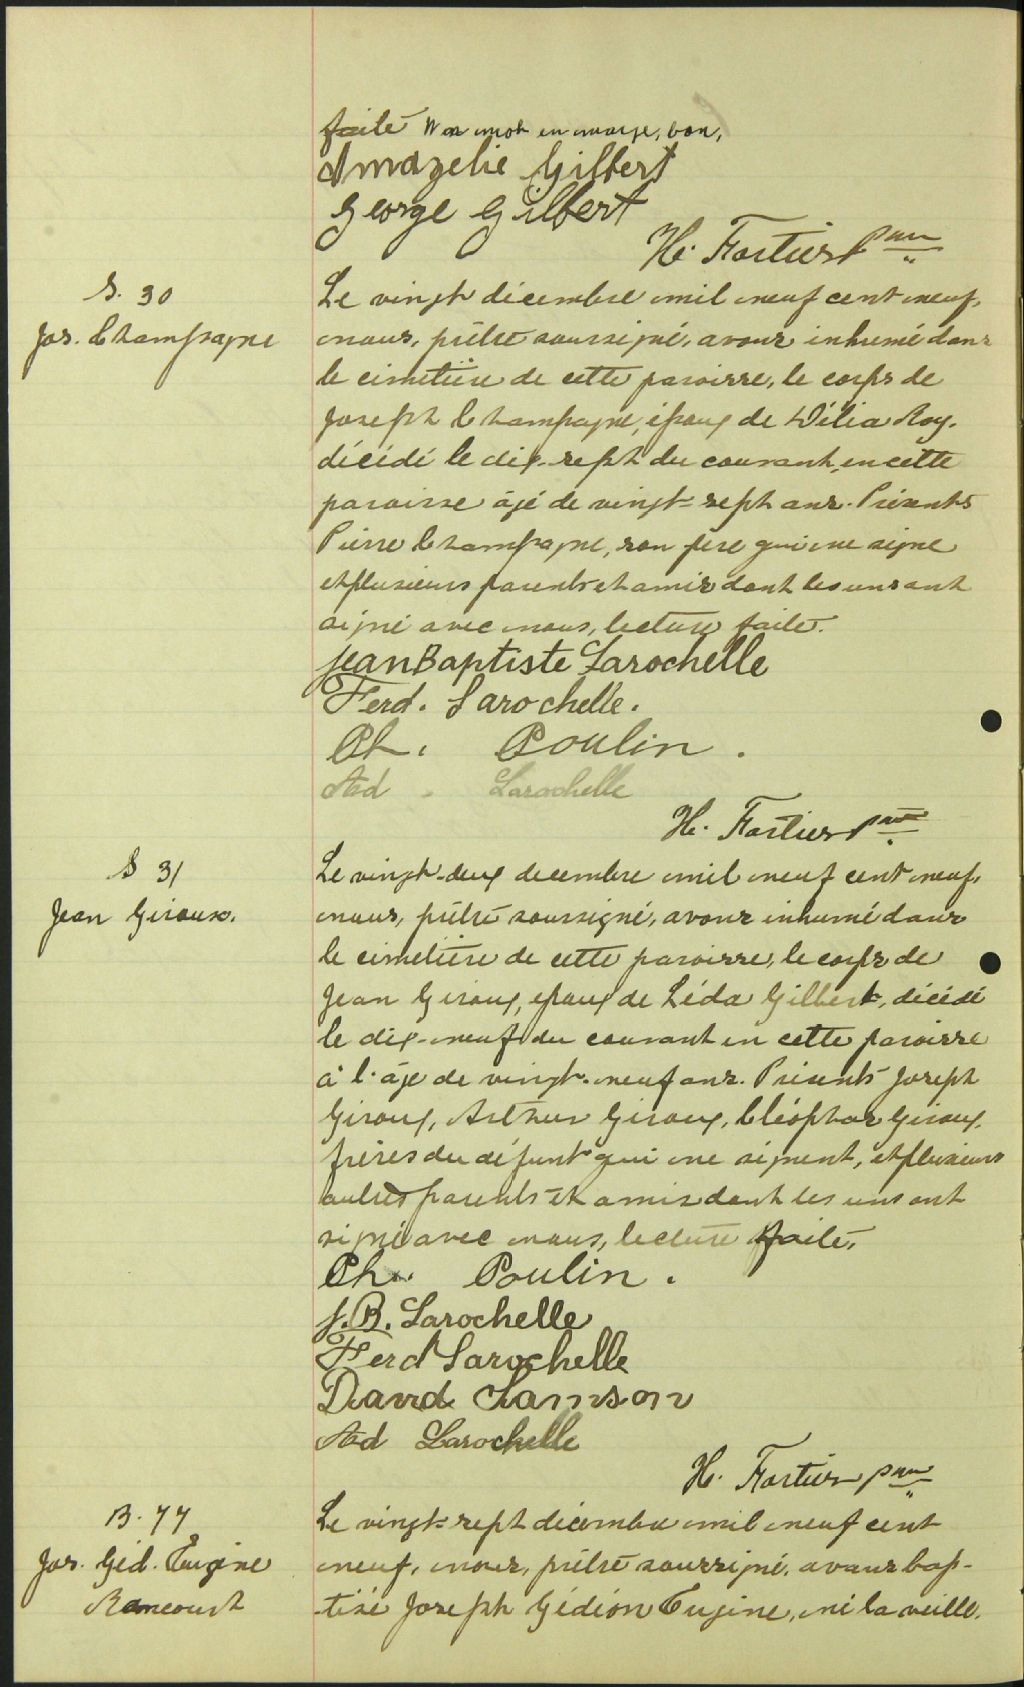 faite Un mot en marge, bon,
Amazelie Gilbert
George Gilbert
H. Fortier Ptre
S. 30
Jos. Champagne
Le vingt décembre mil neuf cent neuf,
nous, prêtre soussigné, avons inhumé dans
le cimetière de cette paroisse, le corps de
Joseph Champagne, époux de Délia Roy.
décédé le dix-sept du courant, en cette
paroisse âgé de vingt-sept ans. Présents
Pierre Champagne, son père qui ne signe
et plusieurs parents et amis dont les uns ont
signé avec nous, lecture faite.
Jean Baptiste Larochelle
Ferd. Larochelle.
Ch. Poulin.
Ad. Larochelle
H. Fortier Ptre
S 31
Jean Giroux.
Le vingt-deux decembre mil neuf cent neuf,
nous, prêtre soussigné, avons inhumé dans
le cimetière de cette paroisse, le corps de
Jean Giroux, epoux de Léda Gilbert, décédé
le dix-neuf du courant en cette paroisse
à l'âge de vingt-neuf ans. Présents Joseph
Giroux, Arthur Giroux, Cléophas Giroux,
frères du défunt qui ne signent, et plusieurs
autres parents et amis dont les uns ont
signé avec nous, lecture faite.
Ch. Poulin.
J. B. Larochelle
Ferd Larochelle
David Samson
Ad Larochelle
H. Fortier ptre
B. 77
Jos. Géd. Eugène
Rancourt
Le vingt-sept décembre mil neuf cent
neuf, nous, prêtre soussigné, avons bap-
-tisé Joseph Gédéon Eugène, né la veille,